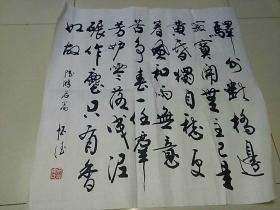 驛外斷橋邊
寂寞開無主已是
黃昏獨自愁更
著風和雨無意
苦爭春一任群
芳妒零落成泥
碾作塵只有香
如故
陸游名篇